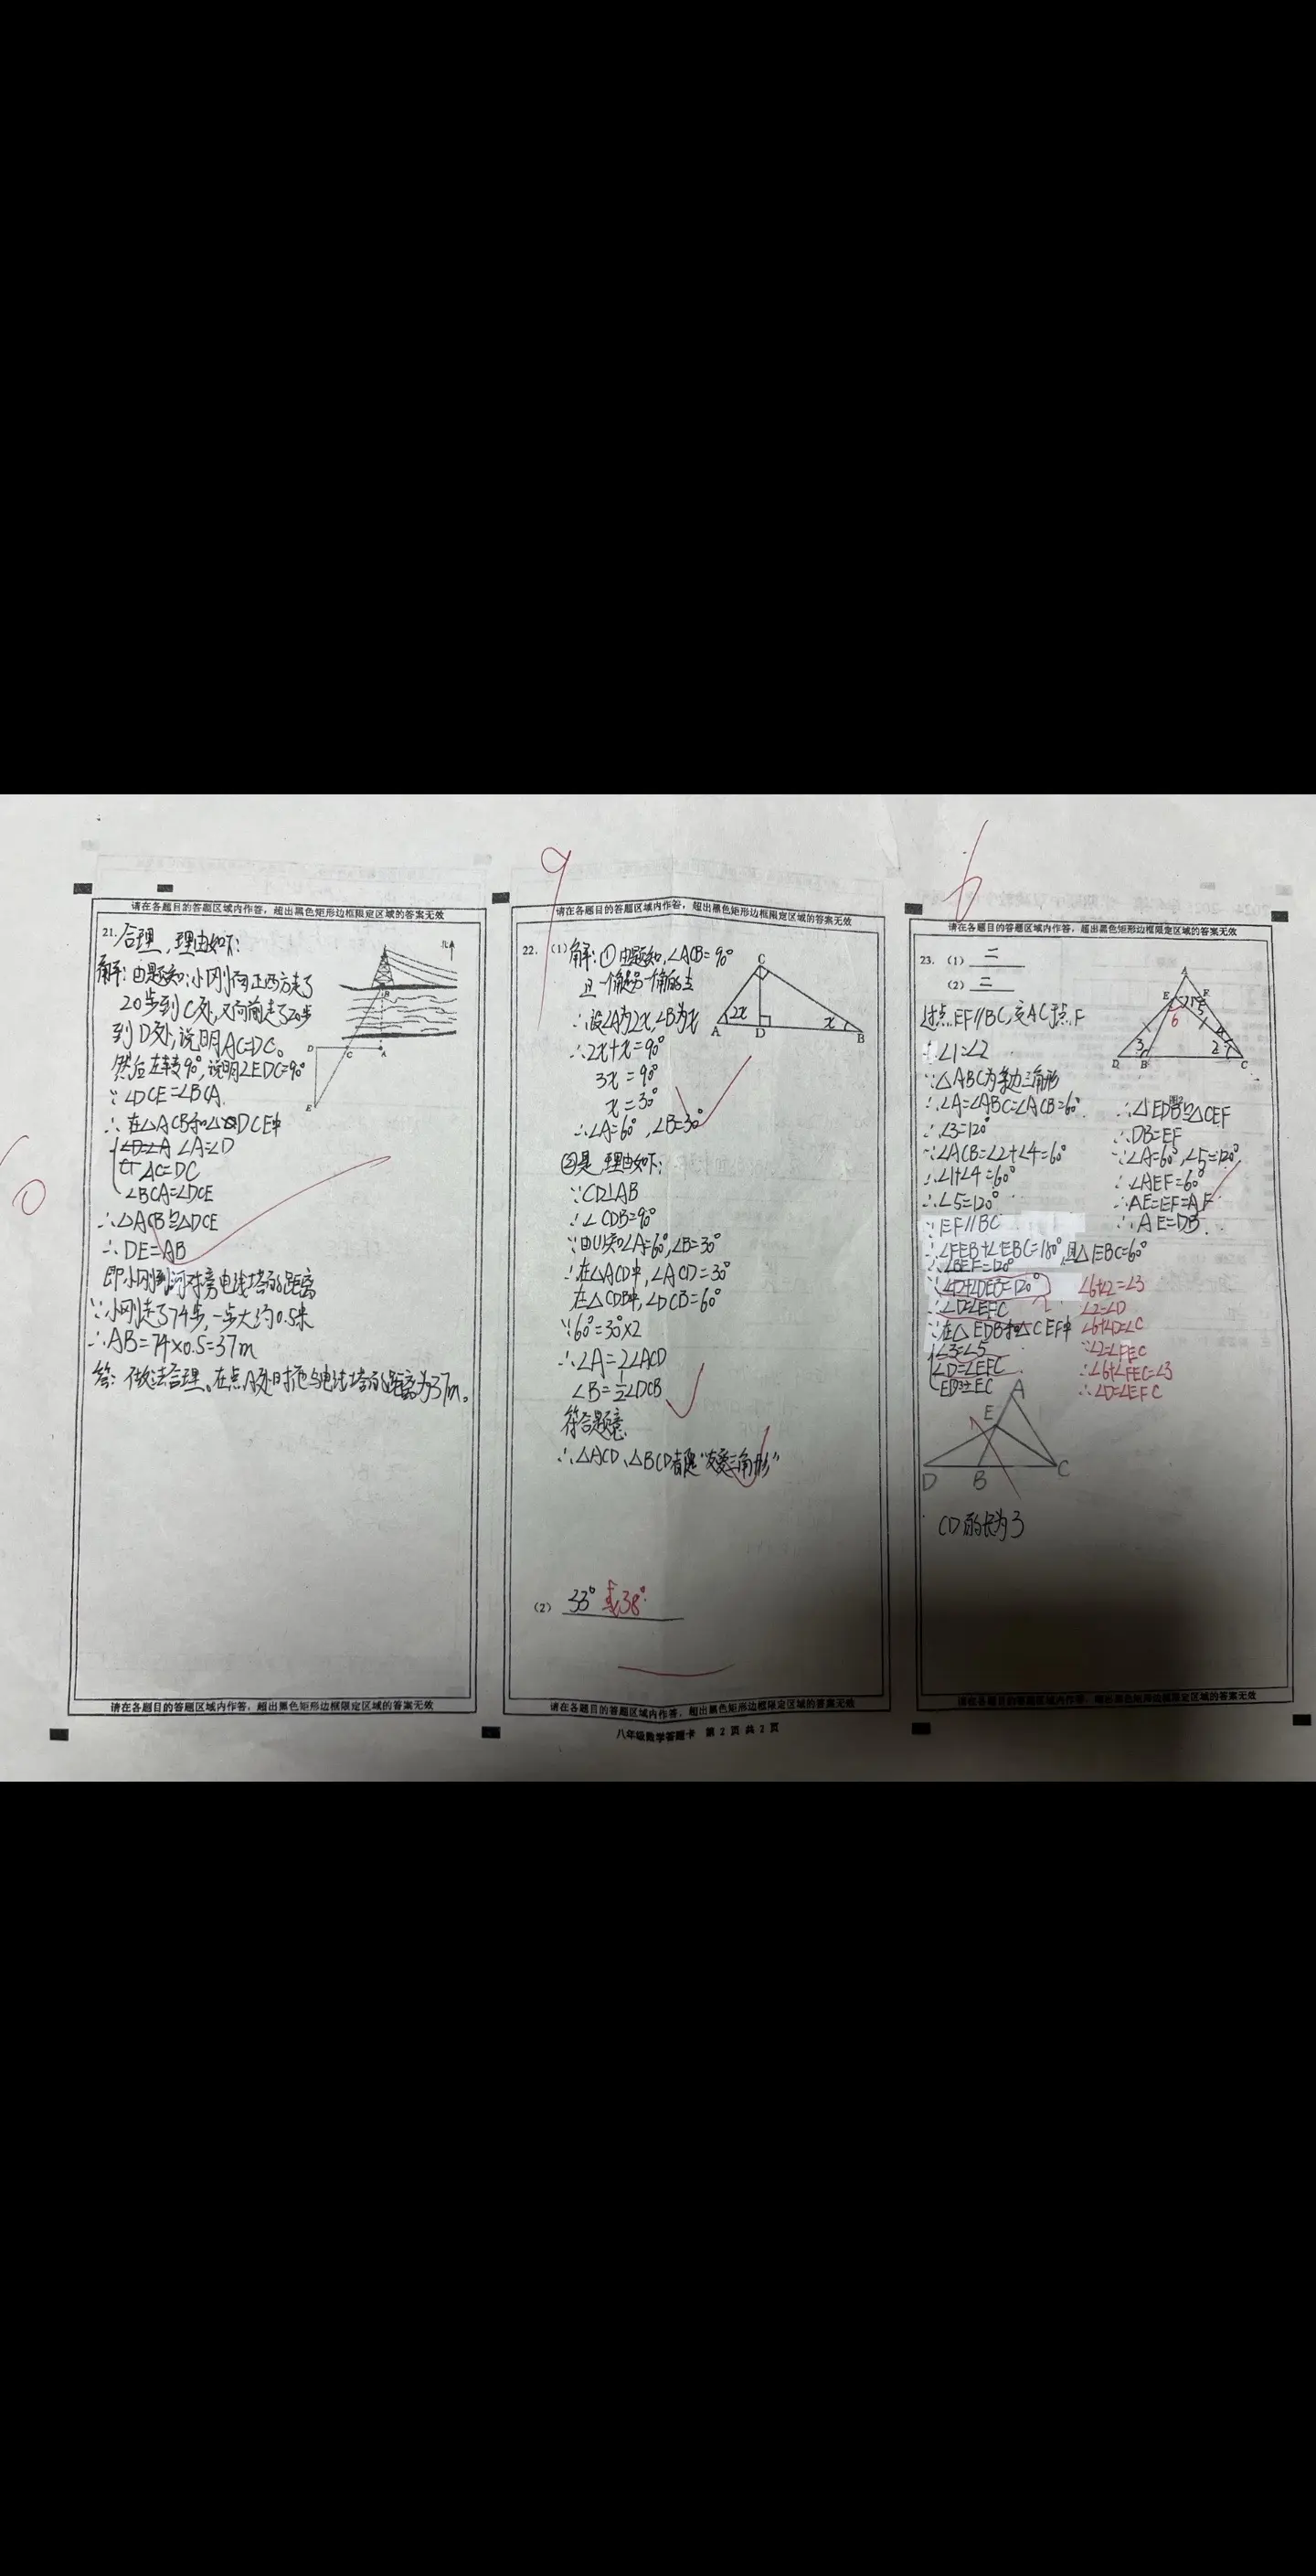 请在各题目的答题区域内作答，超出黑色矩形边框限定区域的答案无效
21. 合理，理由如下：
解：由题知：小刚向正西方走了
20步到C处，又向前走了20步
到D处，说明AC=DC。
然后左转90°，说明∠EDC=90°
∵∠DCE=∠BCA
∴在△ACB和△DCE中
∠D=∠A ∠A=∠D
AC=DC
∠BCA=∠DCE
∴△ACB≌△DCE
∴DE=AB
即小刚到河对旁电线塔的距离
∵小刚走了74步，一步大约0.5米
∴AB=74×0.5=37m
答：做法合理。在点A处时他与电线塔的距离为37m。
北
B
D
C
A
E
请在各题目的答题区域内作答，超出黑色矩形边框限定区域的答案无效
9
请在各题目的答题区域内作答，超出黑色矩形边框限定区域的答案无效
22. (1)解：①由题知，∠ACB=90°
且一个角是另一个角的2
∴设∠A为2x，∠B为x
∴2x+x=90°
3x=90°
x=30°
∴∠A=60°，∠B=30°
②是，理由如下：
∵CD⊥AB
∴∠CDB=90°
∵由(1)知∠A=60°，∠B=30°
∴在△ACD中，∠ACD=30°
在△CDB中，∠DCB=60°
∵60°=30°×2
∴∠A=2∠ACD
∠B=½∠DCB
符合题意.
∴△ACD、△BCD都是“友爱三角形”
C
2x
x
A
D
B
(2) 33° 或38°
请在各题目的答题区域内作答，超出黑色矩形边框限定区域的答案无效
八年级数学答题卡 第 2 页 共 2 页
6
请在各题目的答题区域内作答，超出黑色矩形边框限定区域的答案无效
23. (1) 二
(2) 三
过点EF//BC，交AC于点F
∴∠1=∠2
∵△ABC为等边三角形
∴∠A=∠ABC=∠ACB=60°
∴∠3=120°
∵∠ACB=∠2+∠4=60°
∴∠1+∠4=60°
∴∠5=120°
∵EF//BC
∴∠FEB+∠EBC=180°，且∠EBC=60°
∴∠BEF=120°
∵∠D+∠DEB=120°
∴∠D=∠EFC
∵在△EDB和△CEF中
∠3=∠5
∠D=∠EFC
ED=EC
∴△EDB≌△CEF
∴DB=EF
∵∠A=60°，∠5=120°
∴∠AEF=60°
∴AE=EF=AF
∴AE=DB
∠6+∠2=∠3
∠2=∠D
∠6+∠D=∠C
∵∠2=∠FEC
∴∠6+∠FEC=∠3
∴∠D=∠EFC
A
E
F
6
5
3
2
D
B
C
A
E
D
B
C
CD的长为3
请在各题目的答题区域内作答，超出黑色矩形边框限定区域的答案无效